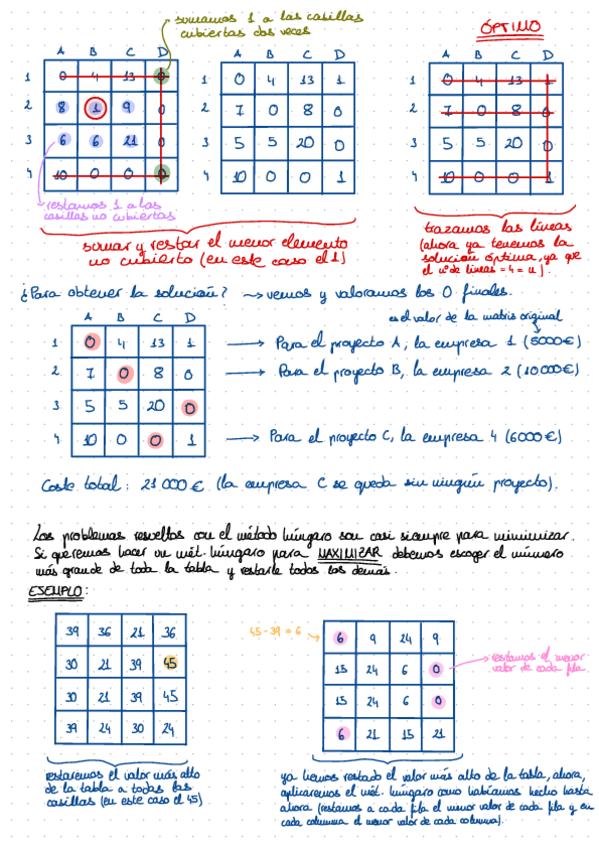 sumamos 1 a las casillas
cubiertas dos veces
ÓPTIMO
A B C D
1 0 4 13 0
2 8 1 9 0
3 6 6 21 0
4 10 0 0 0
A B C D
1 0 4 13 1
2 7 0 8 0
3 5 5 20 0
4 10 0 0 1
A B C D
1 0 4 13 1
2 7 0 8 0
3 5 5 20 0
4 10 0 0 1
restamos 1 a las
casillas no cubiertas
sumar y restar el menor elemento
no cubierto (en este caso el 1)
trazamos las líneas
(ahora ya tenemos la
solución óptima, ya que
el nº de líneas = 4 = n).
¿Para obtener la solución? → vemos y valoramos los 0 finales.
es el valor de la matriz original
A B C D
1 0 4 13 1 → Para el proyecto A, la empresa 1 (5000€)
2 7 0 8 0 → Para el proyecto B, la empresa 2 (10000€)
3 5 5 20 0
4 10 0 0 1 → Para el proyecto C, la empresa 4 (6000€)
Coste total: 21000€ (la empresa C se queda sin ningún proyecto).
Los problemas resueltos con el método húngaro son casi siempre para minimizar.
Si queremos hacer un mét. húngaro para MAXIMIZAR debemos escoger el número
más grande de toda la tabla y restarle todos los demás.
EJEMPLO:
39 36 21 36
30 21 39 45
30 21 39 45
39 24 30 24
45-39=6
6 9 24 9
15 24 6 0
15 24 6 0
6 21 15 21
restamos el menor
valor de cada fila
restaremos el valor más alto
de la tabla a todas las
casillas (en este caso el 45)
ya hemos restado el valor más alto de la tabla, ahora,
aplicaremos el mét. húngaro como habíamos hecho hasta
ahora (restamos a cada fila el menor valor de cada fila y en
cada columna el menor valor de cada columna).